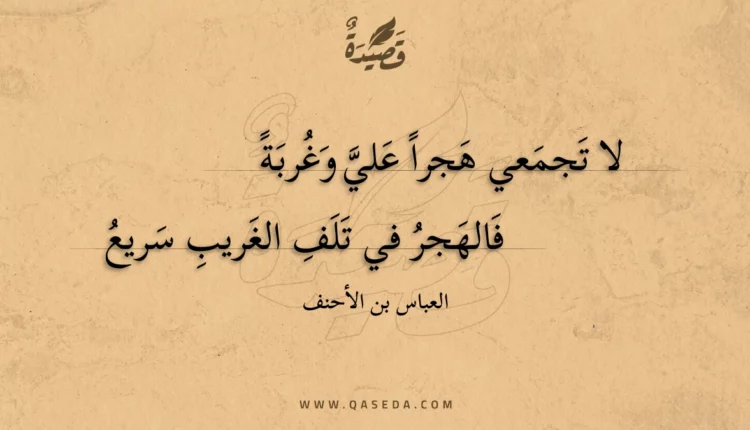 قَصِيدَةٌ
لا تَجمَعي هَجراً عَليَّ وَغُربَةً
فَالهَجرُ في تَلَفِ الغَريبِ سَريعُ
العباس بن الأحنف
WWW.QASEDA.COM